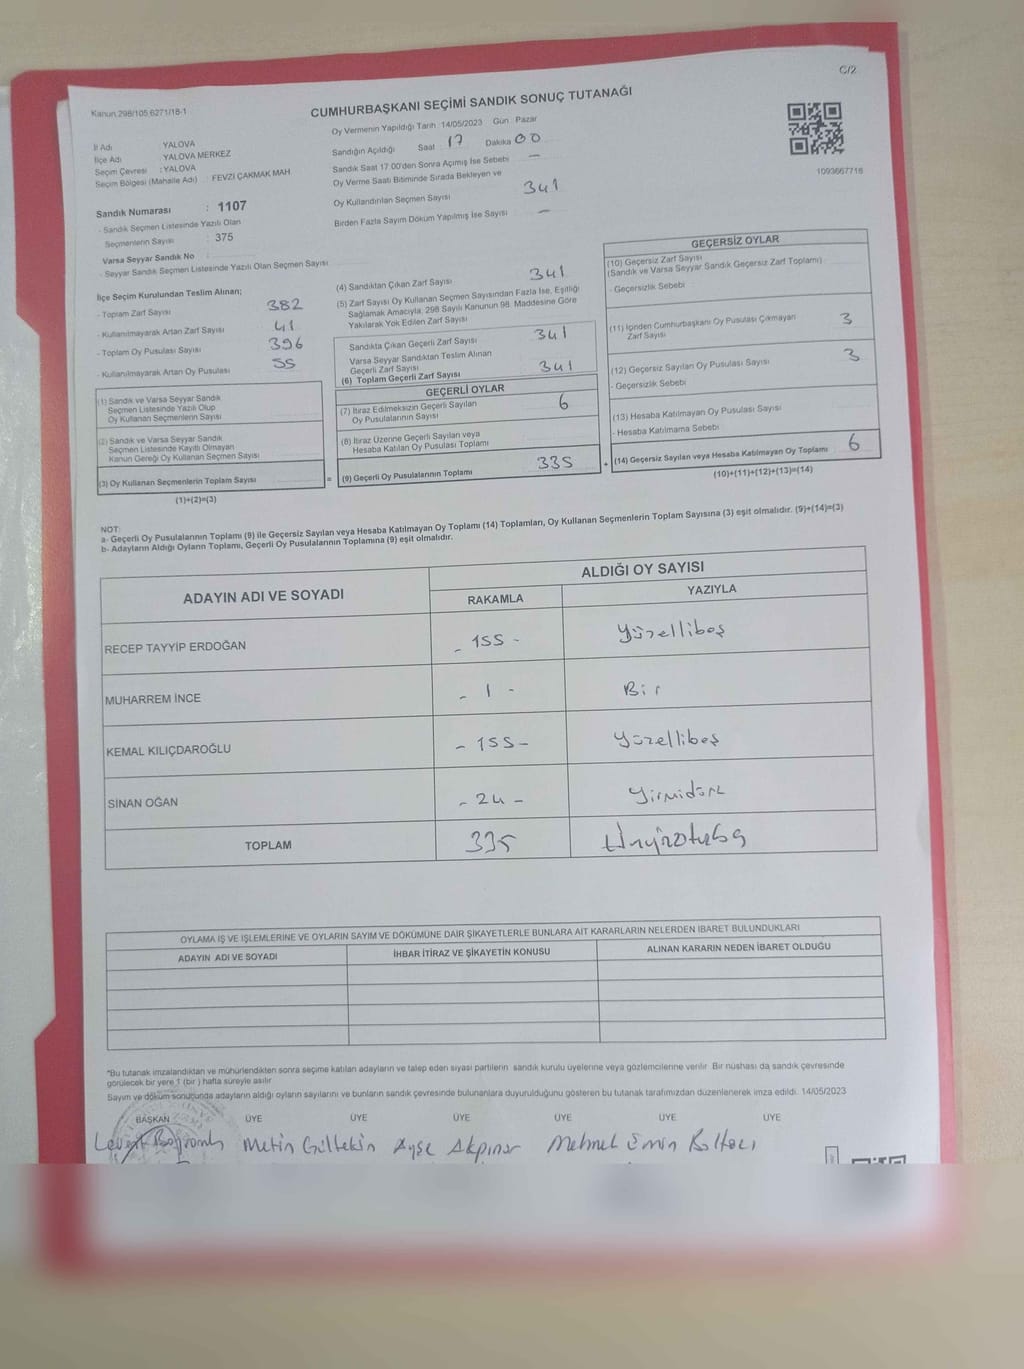 C/2
Kanun 298/105 6271/18-1
CUMHURBAŞKANI SEÇİMİ SANDIK SONUÇ TUTANAĞI
Oy Vermenin Yapıldığı Tarih 14/05/2023 Gün Pazar
İl Adı YALOVA
İlçe Adı YALOVA MERKEZ
Seçim Çevresi : YALOVA
Seçim Bölgesi (Mahalle Adı) FEVZİ ÇAKMAK MAH.
Sandığın Açıldığı Saat 17 Dakika 00
Sandık Saat 17 00'den Sonra Açımış İse Sebebi —
Oy Verme Saati Bitiminde Sırada Bekleyen ve
Oy Kullandırılan Seçmen Sayısı 341
Birden Fazla Sayım Döküm Yapılmış İse Sayısı —
1093667716
Sandık Numarası : 1107
- Sandık Seçmen Listesinde Yazılı Olan
Seçmenlerin Sayısı : 375
Varsa Seyyar Sandık No :
- Seyyar Sandık Seçmen Listesinde Yazılı Olan Seçmen Sayısı
İlçe Seçim Kurulundan Teslim Alınan;
- Toplam Zarf Sayısı 382
- Kullanılmayarak Artan Zarf Sayısı 41
- Toplam Oy Pusulası Sayısı 396
- Kullanılmayarak Artan Oy Pusulası 55
(1) Sandık ve Varsa Seyyar Sandık
Seçmen Listesinde Yazılı Olup
Oy Kullanan Seçmenlerin Sayısı
(2) Sandık ve Varsa Seyyar Sandık
Seçmen Listesinde Kayıtlı Olmayan
Kanun Gereği Oy Kullanan Seçmen Sayısı
(3) Oy Kullanan Seçmenlerin Toplam Sayısı
(1)+(2)=(3)
=
(4) Sandıktan Çıkan Zarf Sayısı 341
(5) Zarf Sayısı Oy Kullanan Seçmen Sayısından Fazla İse, Eşitliği
Sağlamak Amacıyla, 298 Sayılı Kanunun 98. Maddesine Göre
Yakılarak Yok Edilen Zarf Sayısı
Sandıkta Çıkan Geçerli Zarf Sayısı 341
Varsa Seyyar Sandıktan Teslim Alınan
Geçerli Zarf Sayısı
(6) Toplam Geçerli Zarf Sayısı 341
GEÇERLİ OYLAR
(7) İtiraz Edilmeksizin Geçerli Sayılan
Oy Pusulalarının Sayısı 6
(8) İtiraz Üzerine Geçerli Sayılan veya
Hesaba Katılan Oy Pusulası Toplamı
(9) Geçerli Oy Pusulalarının Toplamı 335
+
GEÇERSİZ OYLAR
(10) Geçersiz Zarf Sayısı
(Sandık ve Varsa Seyyar Sandık Geçersiz Zarf Toplamı)
- Geçersizlik Sebebi
(11) İçinden Cumhurbaşkanı Oy Pusulası Çıkmayan
Zarf Sayısı 3
(12) Geçersiz Sayılan Oy Pusulası Sayısı 3
- Geçersizlik Sebebi
(13) Hesaba Katılmayan Oy Pusulası Sayısı
- Hesaba Katılmama Sebebi
(14) Geçersiz Sayılan veya Hesaba Katılmayan Oy Toplamı 6
(10)+(11)+(12)+(13)=(14)
NOT:
a- Geçerli Oy Pusulalarının Toplamı (9) ile Geçersiz Sayılan veya Hesaba Katılmayan Oy Toplamı (14) Toplamları, Oy Kullanan Seçmenlerin Toplam Sayısına (3) eşit olmalıdır. (9)+(14)=(3)
b- Adayların Aldığı Oyların Toplamı, Geçerli Oy Pusulalarının Toplamına (9) eşit olmalıdır.
ADAYIN ADI VE SOYADI
ALDIĞI OY SAYISI
RAKAMLA YAZIYLA
RECEP TAYYİP ERDOĞAN - 155 - Yüzellibeş
MUHARREM İNCE - 1 - Bir
KEMAL KILIÇDAROĞLU - 155 - Yüzellibeş
SİNAN OĞAN - 24 - Yirmidört
TOPLAM 335
OYLAMA İŞ VE İŞLEMLERİNE VE OYLARIN SAYIM VE DÖKÜMÜNE DAİR ŞİKAYETLERLE BUNLARA AİT KARARLARIN NELERDEN İBARET BULUNDUKLARI
ADAYIN ADI VE SOYADI İHBAR İTİRAZ VE ŞİKAYETİN KONUSU ALINAN KARARIN NEDEN İBARET OLDUĞU
*Bu tutanak imzalandıktan ve mühürlendikten sonra seçime katılan adayların ve talep eden siyasi partilerin sandık kurulu üyelerine veya gözlemcilerine verilir. Bir nüshası da sandık çevresinde
görülecek bir yere 1 (bir ) hafta süreyle asılır
Sayım ve döküm sonucunda adayların aldığı oyların sayılarını ve bunların sandık çevresinde bulunanlara duyurulduğunu gösteren bu tutanak tarafımızdan düzenlenerek imza edildi. 14/05/2023
BAŞKAN ÜYE ÜYE ÜYE ÜYE ÜYE ÜYE
Levent Metin Gültekin Ayşe Akpınar Mehmet Emin